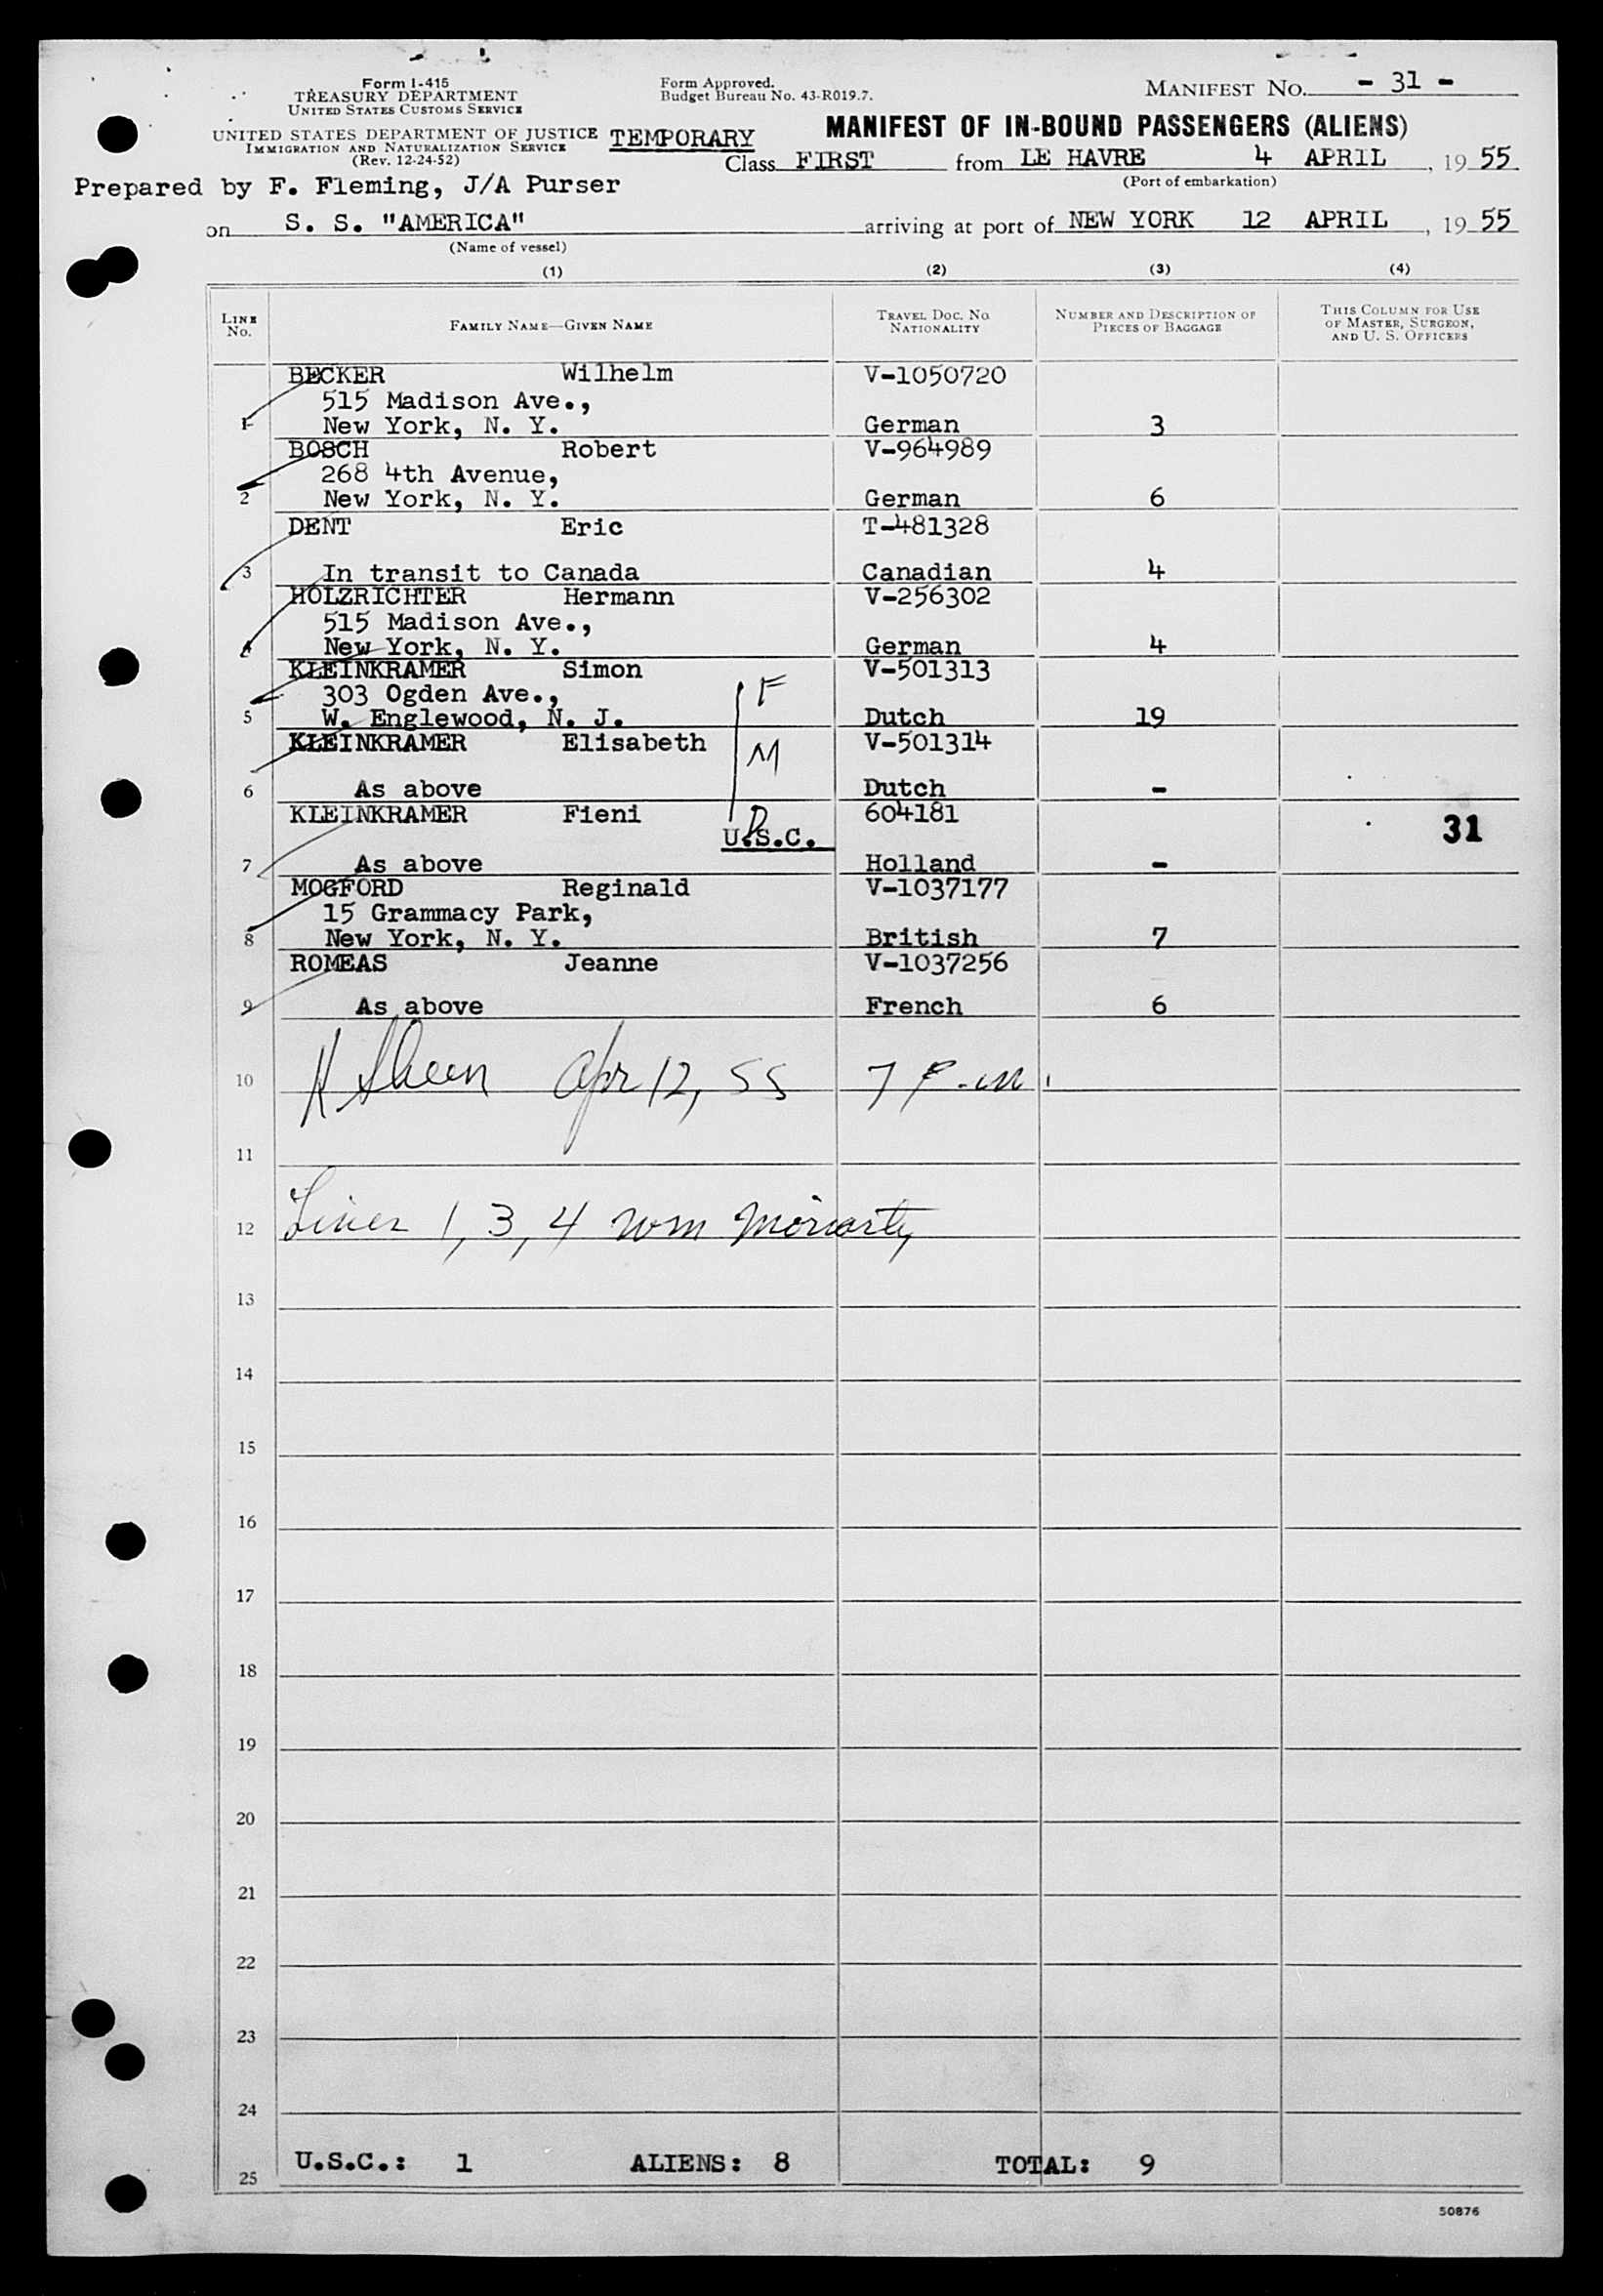 Form I-415
TREASURY DEPARTMENT
UNITED STATES CUSTOMS SERVICE
Form Approved.
Budget Bureau No. 43-R019.7.
MANIFEST No. - 31 -
UNITED STATES DEPARTMENT OF JUSTICE
IMMIGRATION AND NATURALIZATION SERVICE
(Rev. 12-24-52)
TEMPORARY
MANIFEST OF IN-BOUND PASSENGERS (ALIENS)
Class FIRST from LE HAVRE 4 APRIL, 1955
(Port of embarkation)
Prepared by F. Fleming, J/A Purser
on S. S. "AMERICA" arriving at port of NEW YORK 12 APRIL, 1955
(Name of vessel)
(1) (2) (3) (4)
LINE No. FAMILY NAME—GIVEN NAME TRAVEL DOC. NO. NATIONALITY NUMBER AND DESCRIPTION OF PIECES OF BAGGAGE THIS COLUMN FOR USE OF MASTER, SURGEON, AND U. S. OFFICERS
BECKER Wilhelm V-1050720
515 Madison Ave.,
1 New York, N. Y. German 3
BOSCH Robert V-964989
268 4th Avenue,
2 New York, N. Y. German 6
DENT Eric T-481328
3 In transit to Canada Canadian 4
HOLZRICHTER Hermann V-256302
515 Madison Ave.,
4 New York, N. Y. German 4
KLEINKRAMER Simon V-501313
303 Ogden Ave., F
5 W. Englewood, N. J. Dutch 19
KLEINKRAMER Elisabeth M V-501314
6 As above Dutch -
KLEINKRAMER Fieni D 604181
U.S.C. 31
7 As above Holland -
MOGFORD Reginald V-1037177
15 Grammacy Park,
8 New York, N. Y. British 7
ROMEAS Jeanne V-1037256
9 As above French 6
10 H Sheen Apr 12, 55 7 P.m.
11
12 Lines 1, 3, 4 Wm Moriarty
13
14
15
16
17
18
19
20
21
22
23
24
25 U.S.C.: 1 ALIENS: 8 TOTAL: 9
50876